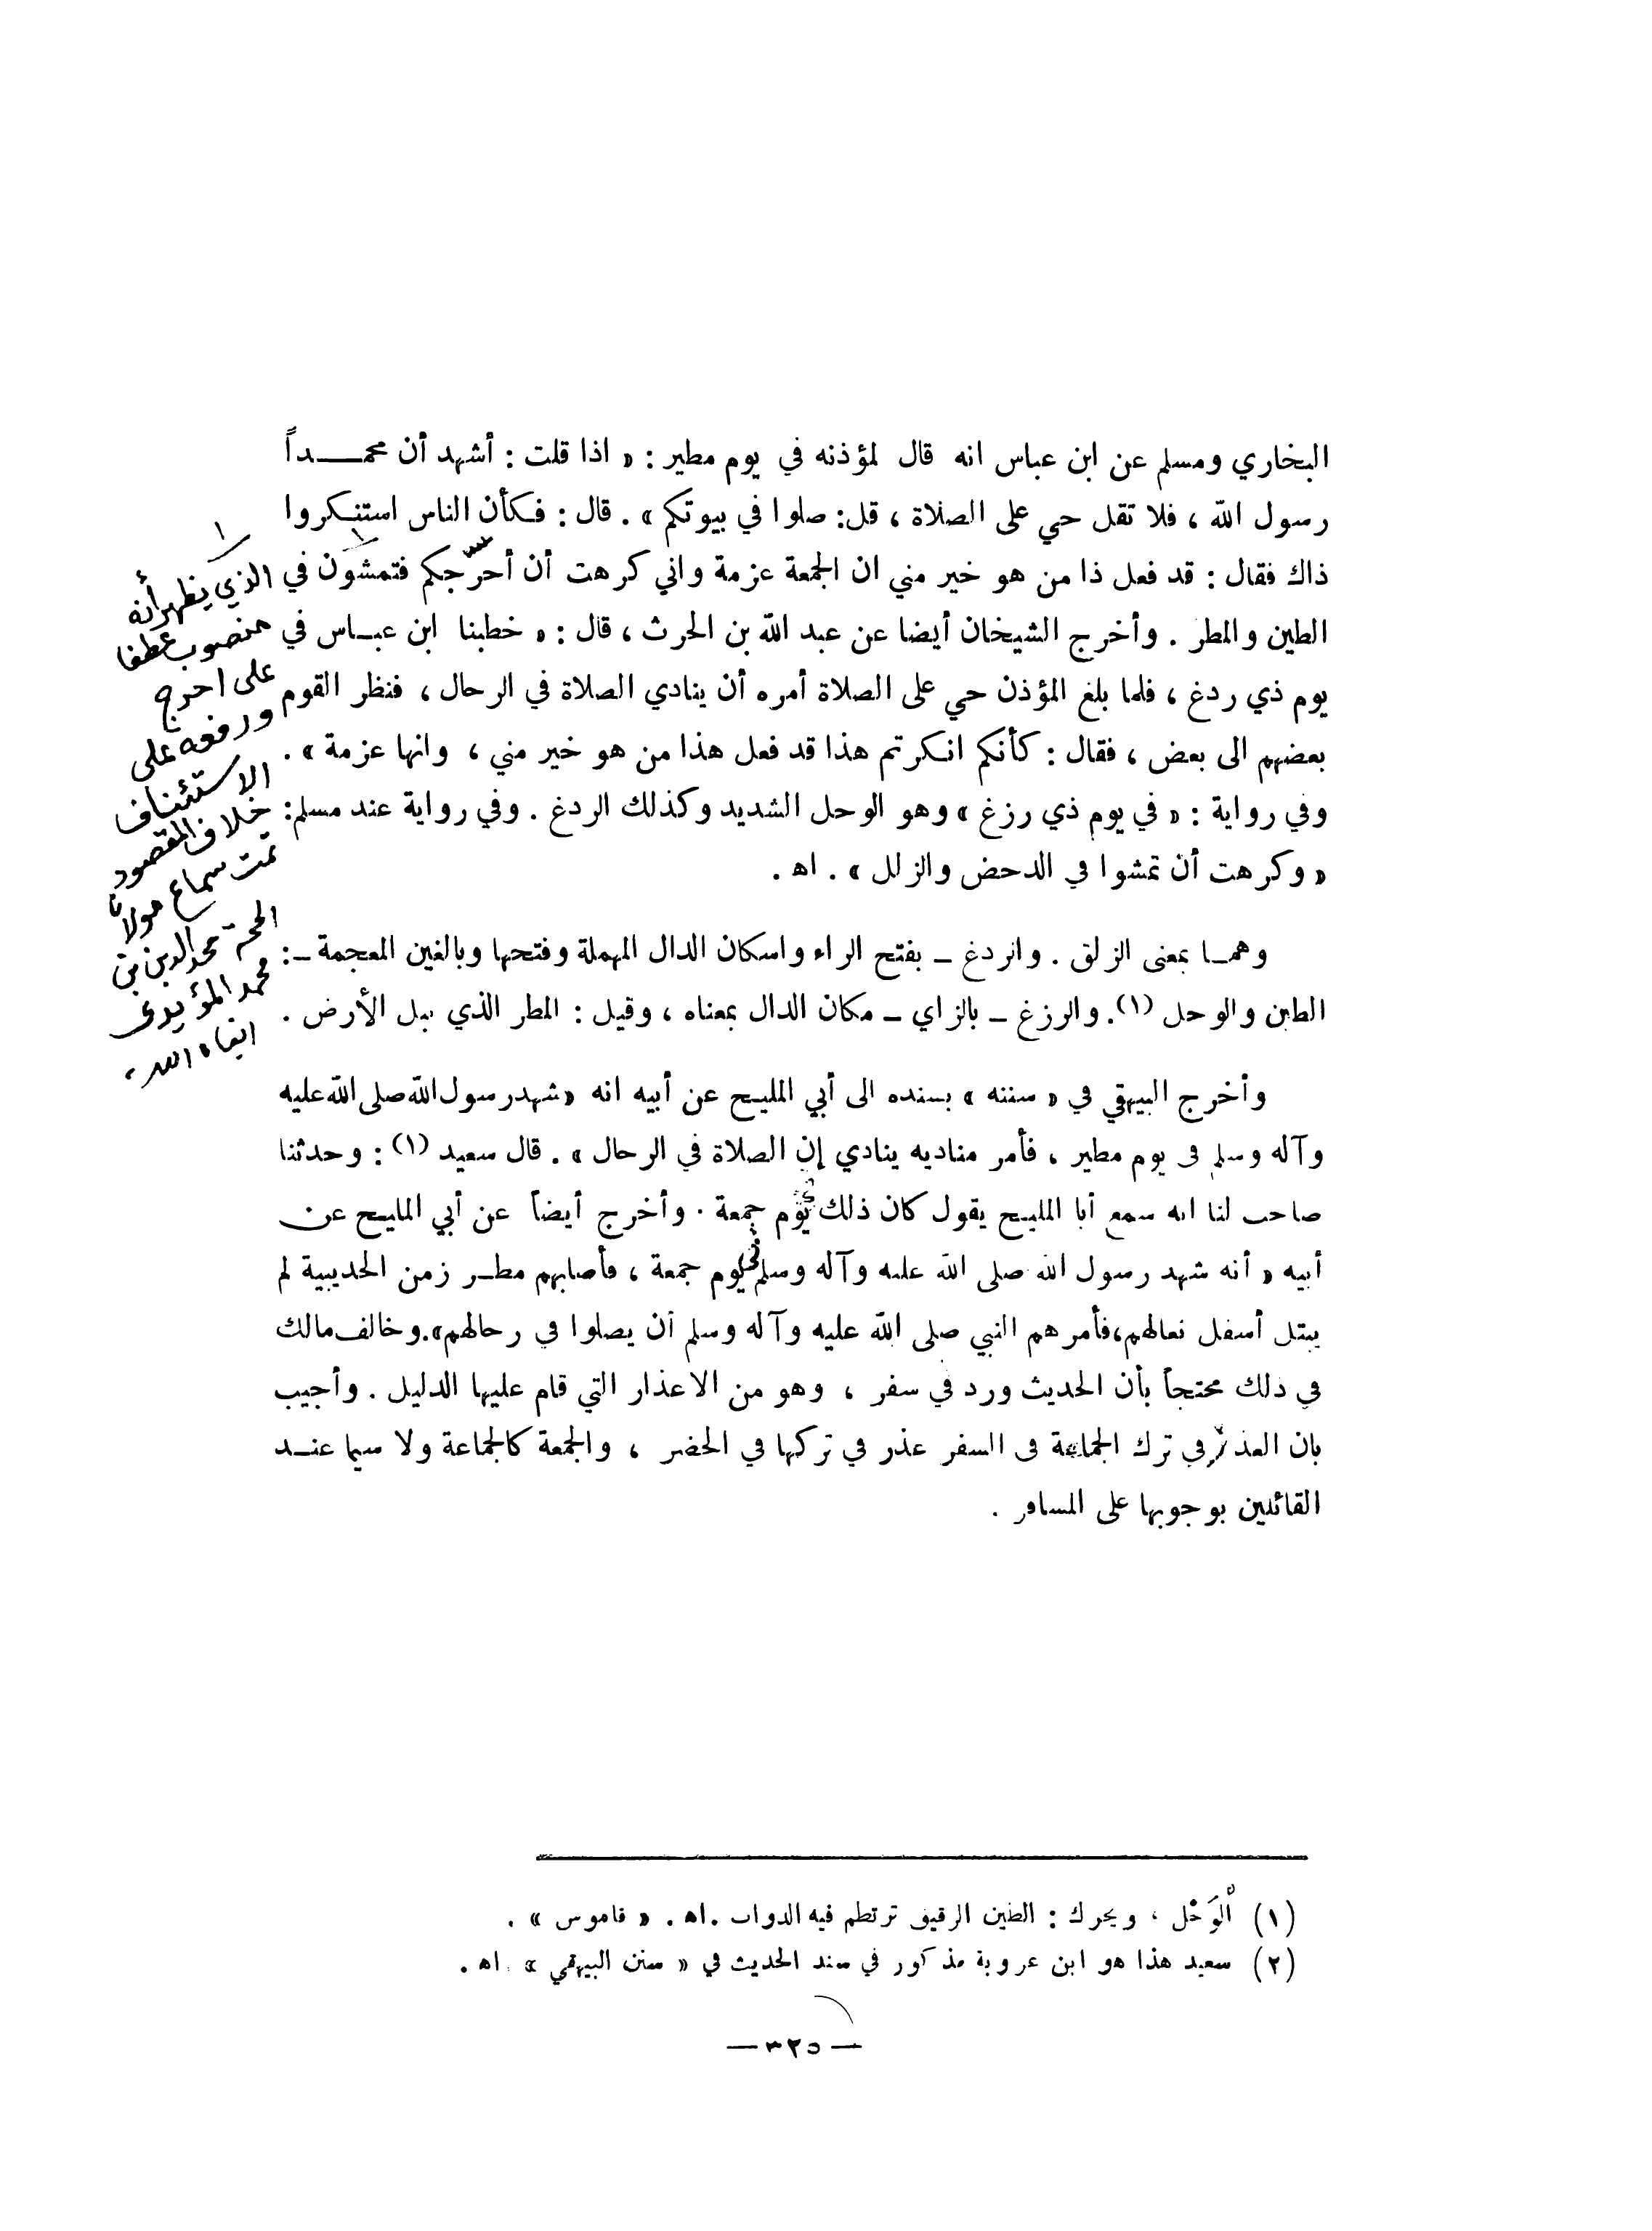 البخاري ومسلم عن ابن عباس انه قال لمؤذنه في يوم مطير : « اذا قلت : أشهد أن محمـــداً
رسول الله ، فلا تقل حي على الصلاة ، قل: صلوا في بيوتكم » . قال : فكأن الناس استنكروا
ذاك فقال : قد فعل ذا من هو خير مني ان الجمعة عزمة واني كرهت أن أحرّجكم فتمشون في
الطين والمطر . وأخرج الشيخان أيضا عن عبد الله بن الحرث ، قال : « خطبنا ابن عباس في
يوم ذي ردغ ، فلما بلغ المؤذن حي على الصلاة أمره أن ينادي الصلاة في الرحال ، فنظر القوم
بعضهم الى بعض ، فقال : كأنكم انكرتم هذا قد فعل هذا من هو خير مني ، وانها عزمة » .
وفي رواية : « في يوم ذي رزغ » وهو الوحل الشديد وكذلك الردغ . وفي رواية عند مسلم:
« وكرهت أن تمشوا في الدحض والزلل » . اه .
وهمـا بمعنى الزلق . والردغ ـ بفتح الراء واسكان الدال المهملة وفتحها وبالغين المعجمة ـ:
الطين والوحل (١). والرزغ ـ بالزاي ـ مكان الدال بمعناه ، وقيل : المطر الذي يبل الأرض .
وأخرج البيهقي في « سننه » بسنده الى أبي المليح عن أبيه انه « شهد رسول الله صلى الله عليه
وآله وسلم في يوم مطير ، فأمر مناديه ينادي إن الصلاة في الرحال » . قال سعيد (١) : وحدثنا
صاحب لنا انه سمع أبا المليح يقول كان ذلك يوم جمعة . وأخرج أيضاً عن أبي المليح عن
أبيه « أنه شهد رسول الله صلى الله عليه وآله وسلم في يوم جمعة ، فأصابهم مطـر زمن الحديبية لم
يبتل أسفل نعالهم،فأمرهم النبي صلى الله عليه وآله وسلم أن يصلوا في رحالهم».وخالف مالك
في ذلك محتجاً بأن الحديث ورد في سفر ، وهو من الاعذار التي قام عليها الدليل . وأجيب
بان العذر في ترك الجماعة في السفر عذر في تركها في الحضر ، والجمعة كالجماعة ولا سيما عنـد
القائلين بوجوبها على المسافر .
١
الذي يظهر أنه
منصوب عطفا
على احرج
ورفعه على
الاستئناف
خلاف المقصود
تمت سماع مولانا
الحجة مجد الدين بن
محمد المؤيدي
ابقاه الله
(١) الْوَحْل ، ويحرك : الطين الرقيق ترتطم فيه الدواب .اه . « قاموس » .
(٢) سعيد هذا هو ابن عروبة مذكور في سند الحديث في « سنن البيهقي » . اه .
— ٣٢٥ —